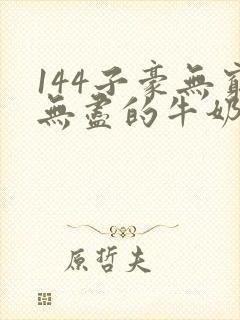 144子豪無窮
無盡的牛奶
原哲夫